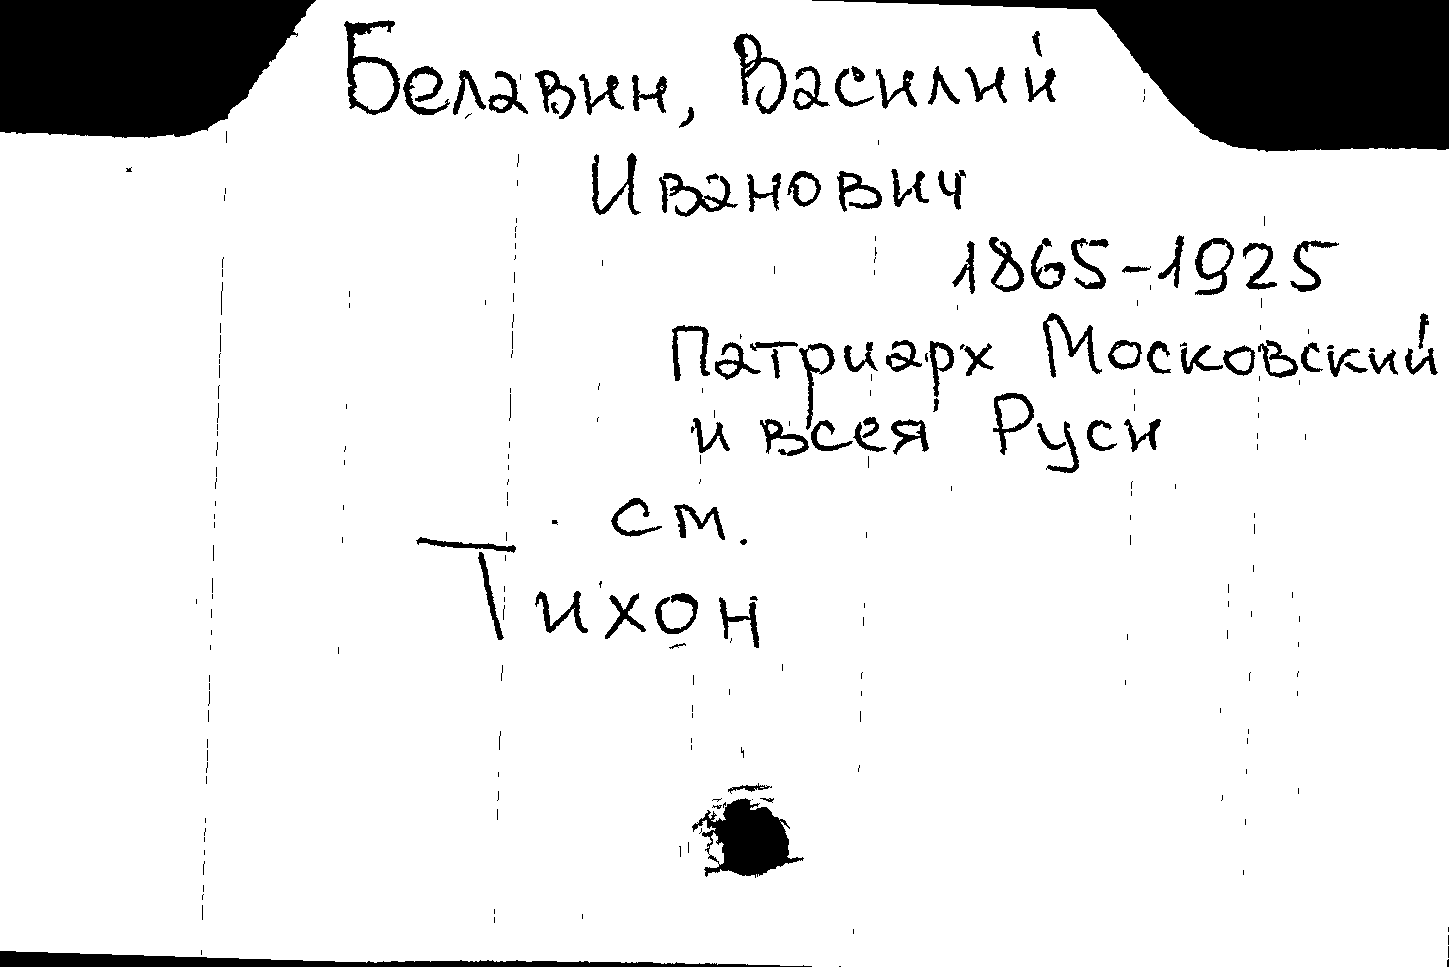 Белавин, Василий
Иванович
1865-1925
Патриарх Московский
и всея Руси
см.
Тихон